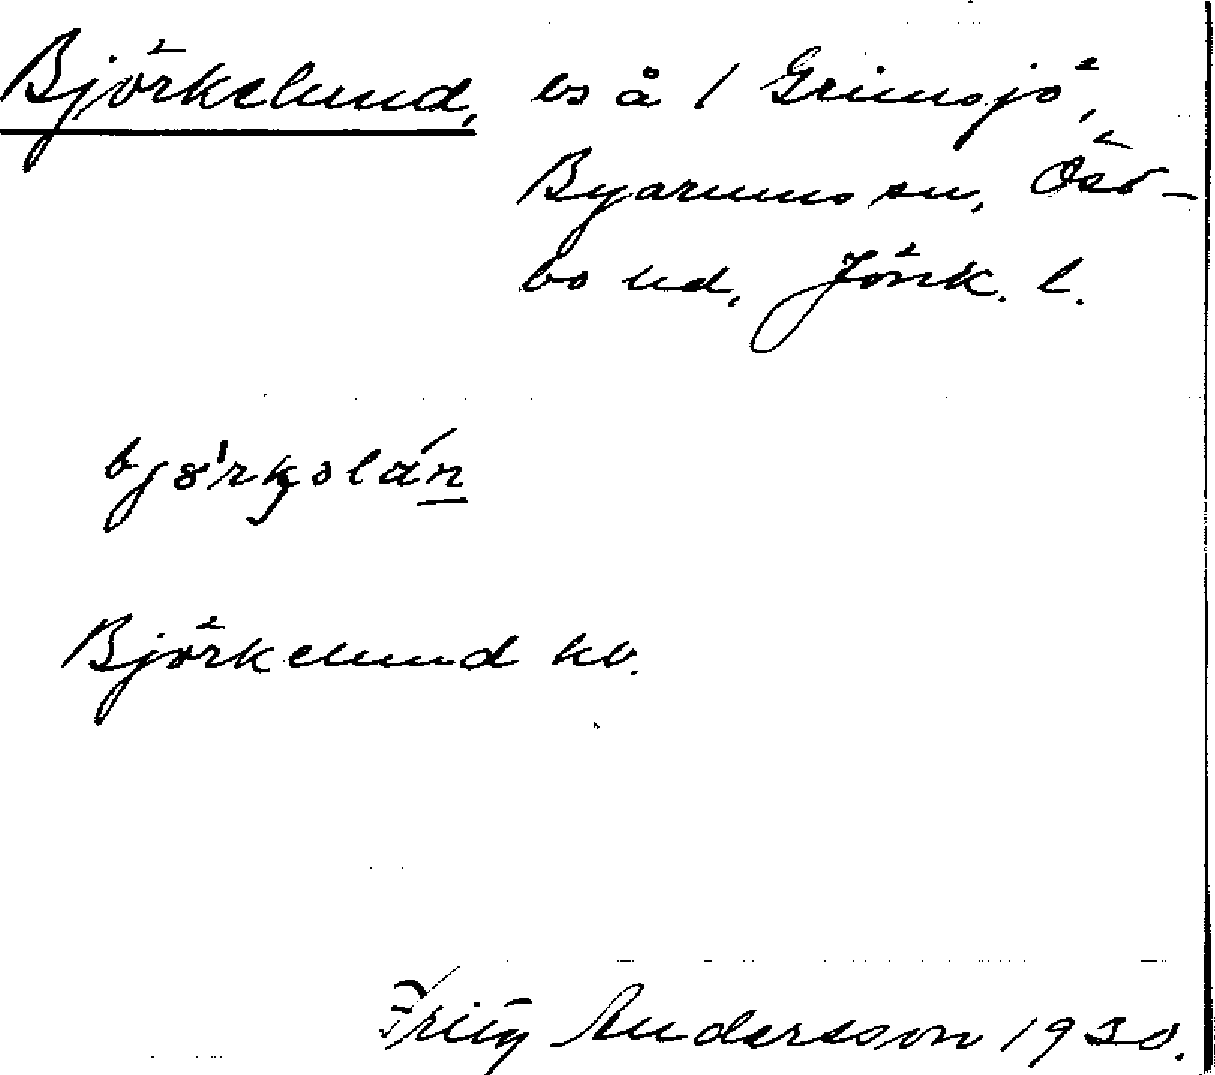 Björkelund, ls å 1 Grimsjö,
Byarums sn, Öst-
bo hd, Jönk. l.
Björkelund kb.
Fritz Andersson 1930.